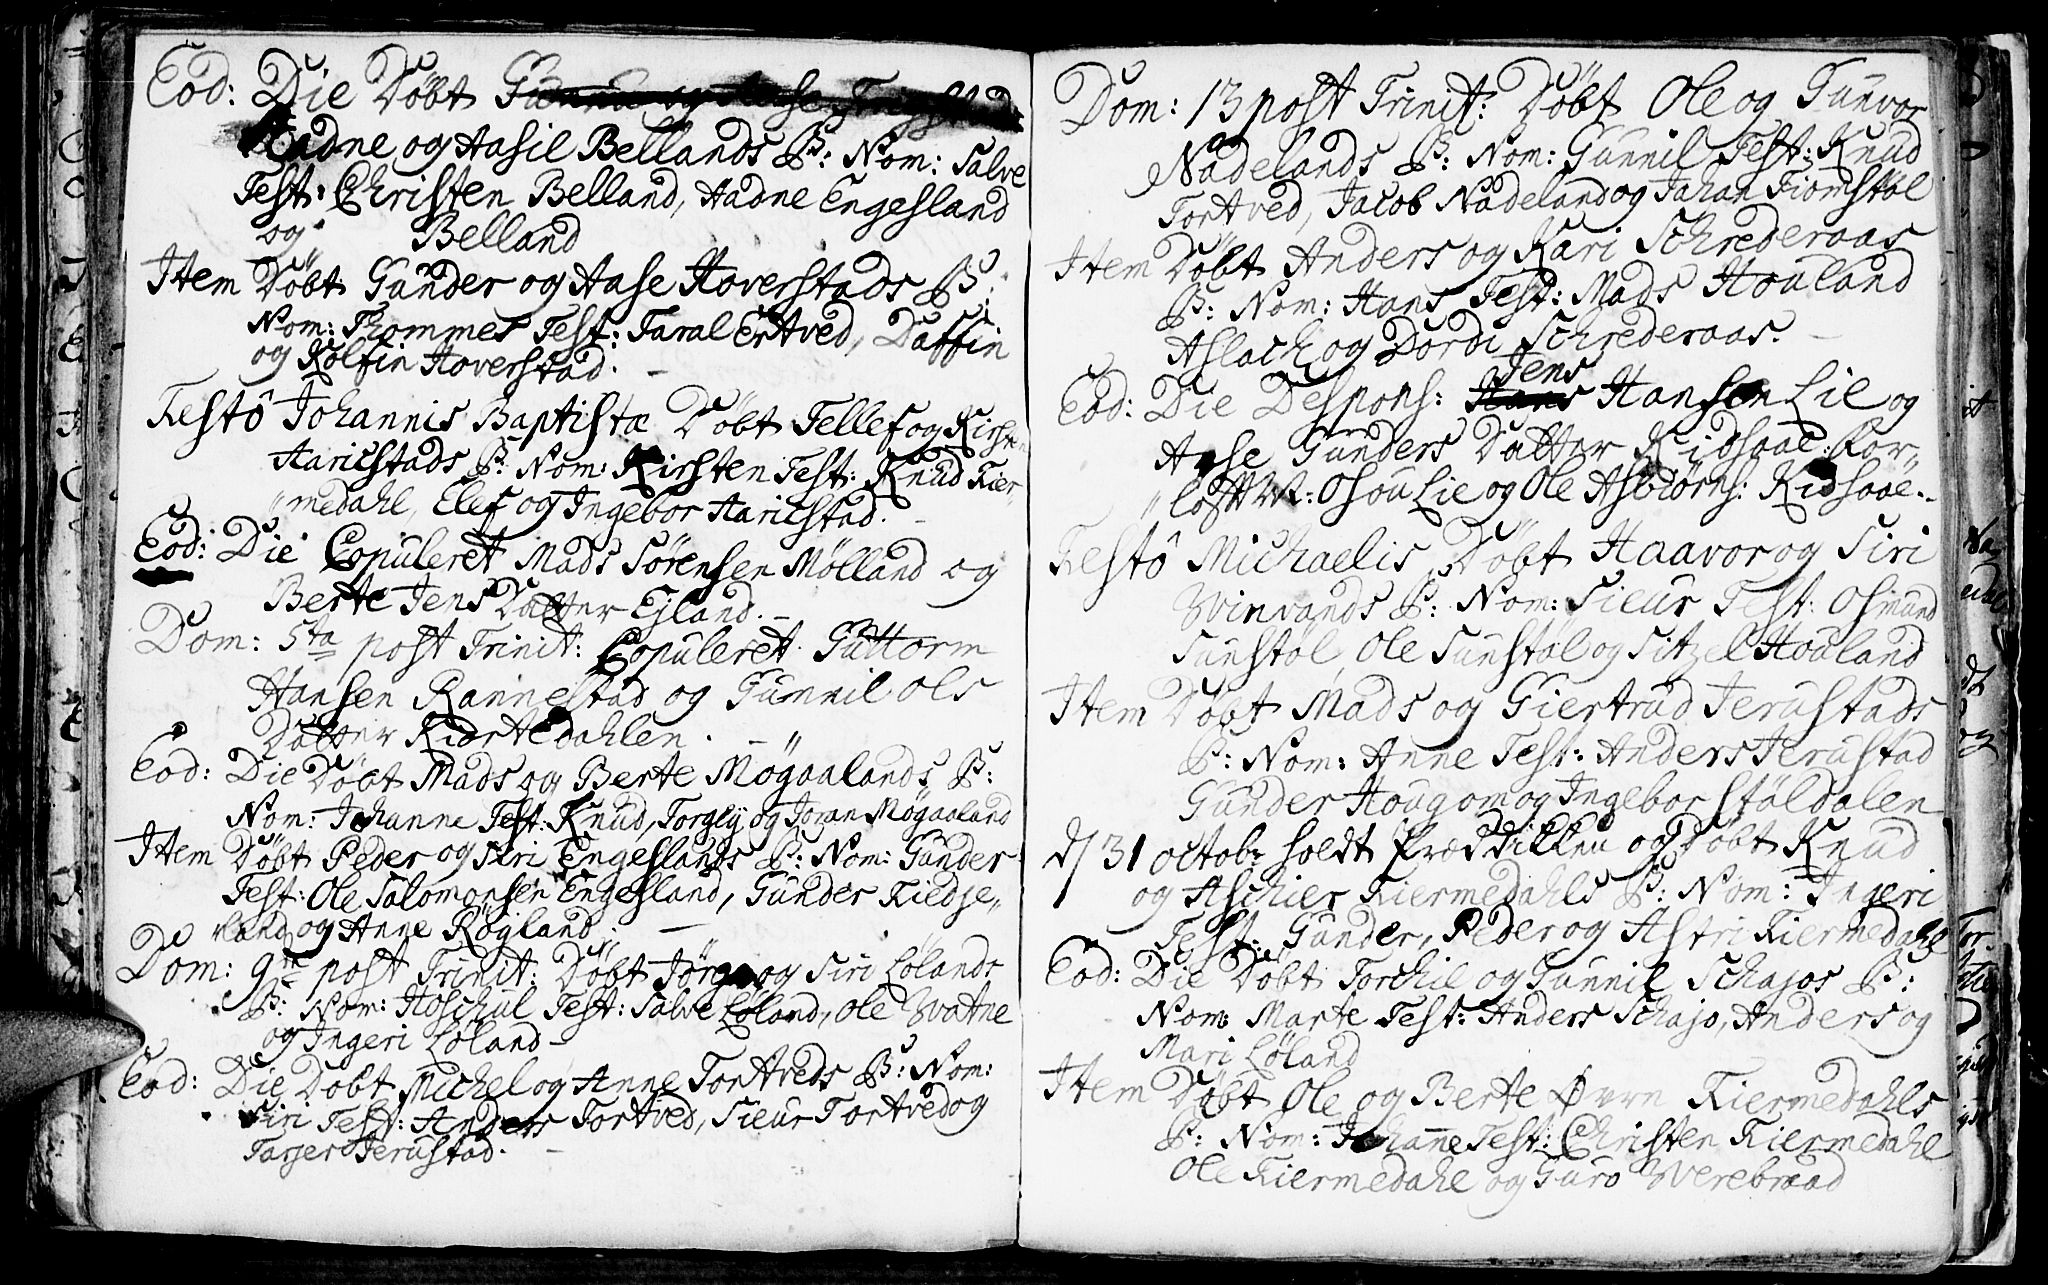 Eod: Die Døbt
Aadne og Aasil Bellands B: Nom: Salve
Test: Christen Belland, Aadne Engesland
og Belland
Item Døbt Gunder og Aase Hoverstads B:
Nom: Thommes Test: Taral Ertved, Daffin
og Rolfin Hoverstad.
Festô Johannis Baptistæ Døbt Tellef og Kirsten
Haricstads B: Nom: Kirsten Test: Knud Kier-
"medahl, Elef og Ingebor Haricstad.
Eod: Die Copuleret Mads Sørensen Mølland og
Berte Jens Datter Ejland.
Dom: 5ta post Trinit: Copuleret Guttorm
Hansen Rannestad og Gunnil Ols
Datter Kiortedahlen.
Eod: Die Døbt Mads og Berte Møgaalands B:
Nom: Johanne Test: Knud, Torgly og Joran Møgaaland
Item Døbt Peder og Siri Engeslands B: Nom: Gunder
Test: Ole Salomonsen Engesland, Gunder Kiedse„
"land og Anne Røgland.
Dom: 9na post Trinit: Døbt Jørgen og Siri Lølands
B: Nom: Hoschul Test: Salve Løland, Ole Watne
og Ingeri Løland
Eod: Die Døbt Michel og Anne Tortveds B: Nom:
Siri Test: Anders Tortved, Sieur Tortved og
Tarjer Jerustad.
Dom: 13 post Trinit: Døbt Ole og Gunvor
Nadelands B: Nom: Gunnil Test: Knud
Tortved, Jacob Nadeland og Johan Fiomstøl
Item Døbt Anders og Kari Schrederaas
B: Nom: Hans Test: Mads Houland
Aslach og Dordi Schrederaas.
Jens
Eod: Die Despons: Hans Hansen Lie og
Aase Gunders Datter Kidsaae. For„
"loft W: Osou Lie og Ole Asbiørns: Kidsaae.
Festô Michaelis Døbt Haavor og Siri
Winrands B: Nom: Sieur Test: Osmund
Sunstøl, Ole Sunstøl og Sitzel Houland
Item Døbt Mads og Giertrud Jerustads
B: Nom: Anne Test: Anders Jerustad
Gunder Hougom og Ingebor Støldalen
d 31 octobr holdt Præddikken og Døbt Knud
og Aschier Kiermedahls B: Nom: Ingeri
Test: Gunder, Peder og Astri Kiermedahl
Eod: Die Døbt Torchil og Gunnil Schajos B:
Nom: Marte Test: Anders Schajo, Anders og
Mari Løland
Item Døbt Ole og Berte Øvre Kiermedahls
B: Nom: Johanne Test: Christen Kiermedahl
Ole Kiermedahl og Guro Werebraad